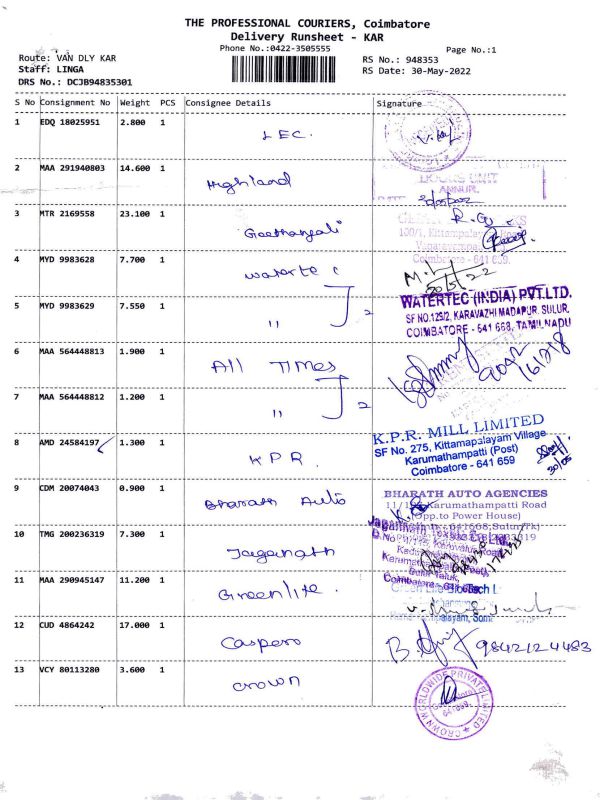 THE PROFESSIONAL COURIERS, Coimbatore
Delivery Runsheet - KAR
Phone No.:0422-3505555
Page No.:1
Route: VAN DLY KAR
RS No.: 948353
Staff: LINGA
RS Date: 30-May-2022
DRS No.: DCJB94835301
S No Consignment No Weight PCS Consignee Details Signature
1 EDQ 18025951 2.800 1 LEC.
2 MAA 291940803 14.600 1 Highland
UNIT
ANNUR.
3 MTR 2169558 23.100 1 Geethanjali
100/1, Kittampalayam Road
Coimbatore - 641 659.
4 MYD 9983628 7.700 1 watertec
30/5/22
WATERTEC (INDIA) PVT.LTD.
5 MYD 9983629 7.550 1 " 2
SF NO.125/2, KARAVAZHI MADAPUR, SULUR,
COIMBATORE - 641 668, TAMILNADU
6 MAA 564448813 1.900 1 All Times
7 MAA 564448812 1.200 1 " 2
K.P.R. MILL LIMITED
8 AMD 24584197 1.300 1 KPR.
SF No. 275, Kittampalayam Village
Karumathampatti (Post)
Coimbatore - 641 659
30/05
9 CDM 20074043 0.900 1 Bharath Auto
BHARATH AUTO AGENCIES
Karumathampatti Road
(Opp.to Power House)
10 TMG 200236319 7.300 1 Jaganath
Sulur Taluk,
11 MAA 290945147 11.200 1 Greenlite.
12 CUD 4864242 17.000 1 Caspero
9842124483
13 VCY 80113280 3.600 1 crown
CROWN WORLDWIDE PRIVATE LIMITED